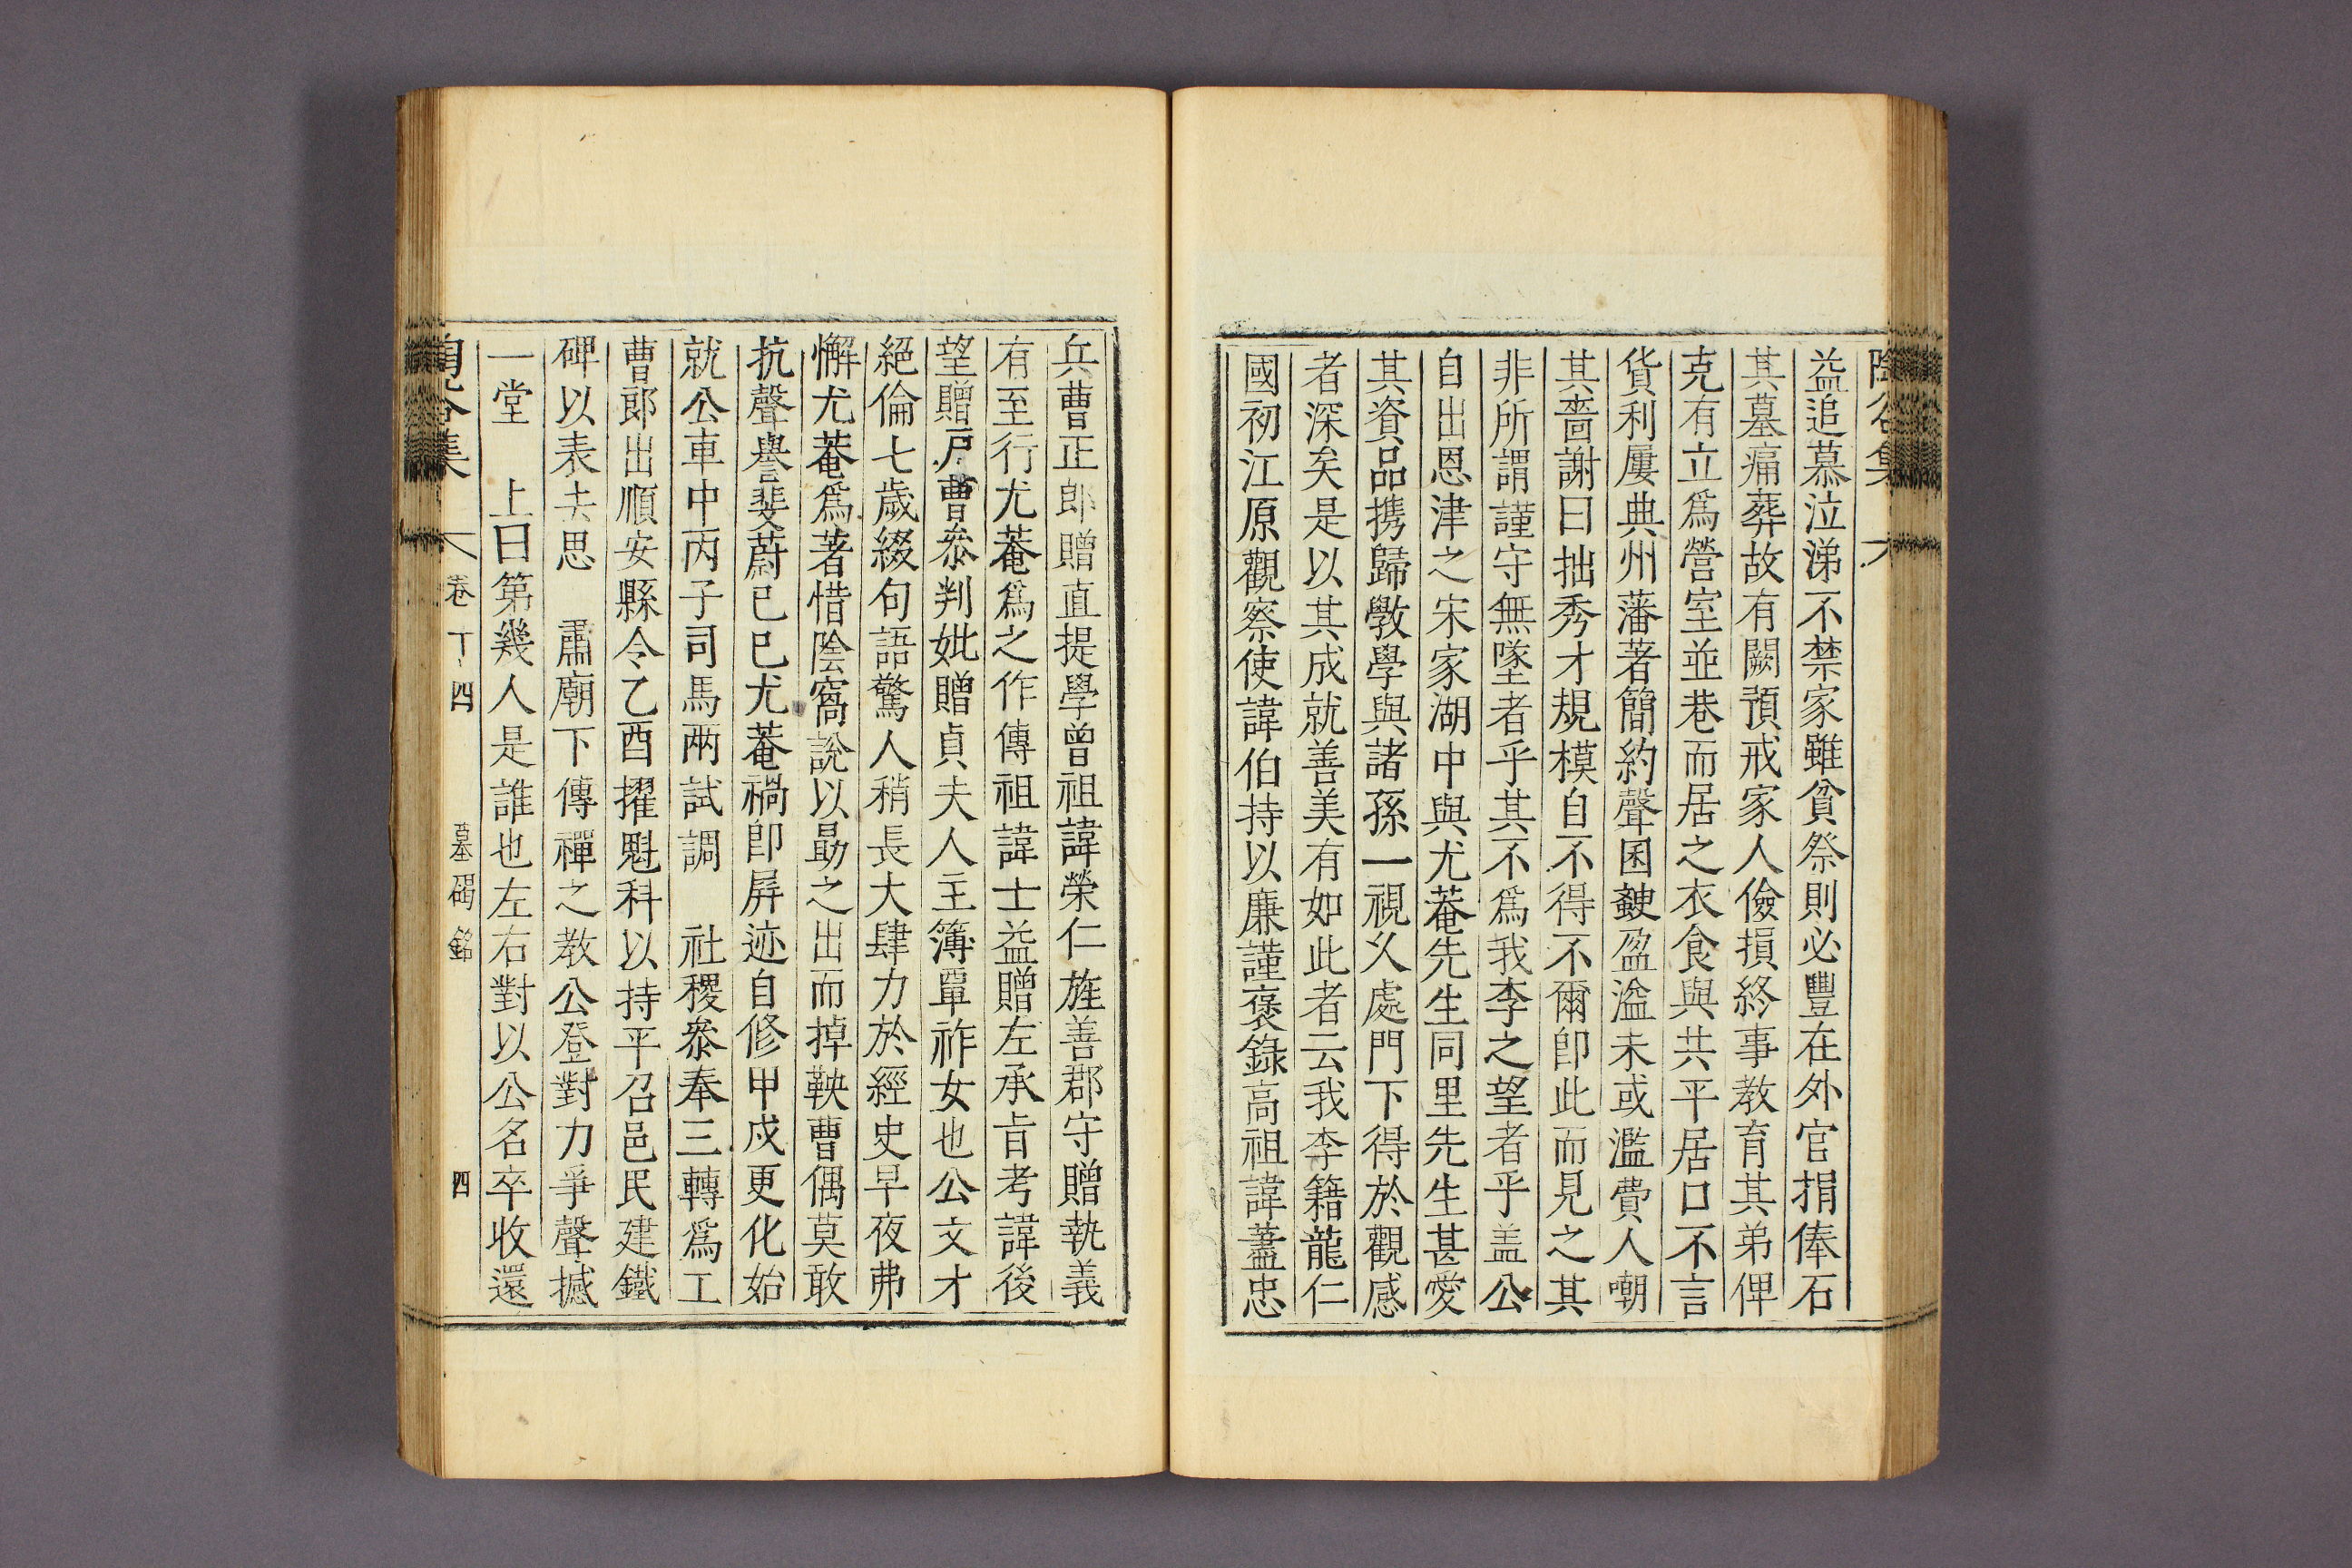 益追慕泣涕不禁家雖貧祭則必豐在外官捐俸石
其墓痛葬故有闕預戒家人儉損終事教育其弟俾
克有立爲營室並巷而居之衣食與共平居口不言
貨利屢典州藩著簡約聲囷皷盈溢未或濫費人嘲
其嗇謝曰拙秀才規模自不得不爾卽此而見之其
非所謂謹守無墜者乎其不爲我李之望者乎盖公
自出恩津之宋家湖中與尤菴先生同里先生甚愛
其資品携歸斆學與諸孫一視乆處門下得於觀感
者深矣是以其成就善美有如此者云我李籍龍仁
國初江原觀察使諱伯持以廉謹褒錄高祖諱藎忠
兵曹正郎贈直提學曾祖諱榮仁旌善郡守贈執義
有至行尤菴爲之作傳祖諱士益贈左承旨考諱後
望贈戸曹叅判妣贈貞夫人主簿單祚女也公文才
絕倫七歲綴句語驚人稍長大肆力於經史早夜弗
懈尤菴爲著惜陰窩說以勗之出而掉鞅曹偶莫敢
抗聲譽斐蔚己巳尤菴禍卽屛迹自修甲戌更化始
就公車中丙子司馬兩試調　社稷叅奉三轉爲工
曹郎出順安縣令乙酉擢魁科以持平召邑民建鐵
碑以表去思　肅廟下傳禪之教公登對力爭聲撼
一堂　上曰第幾人是誰也左右對以公名卒收還
陶谷集　卷十四　墓碣銘　四